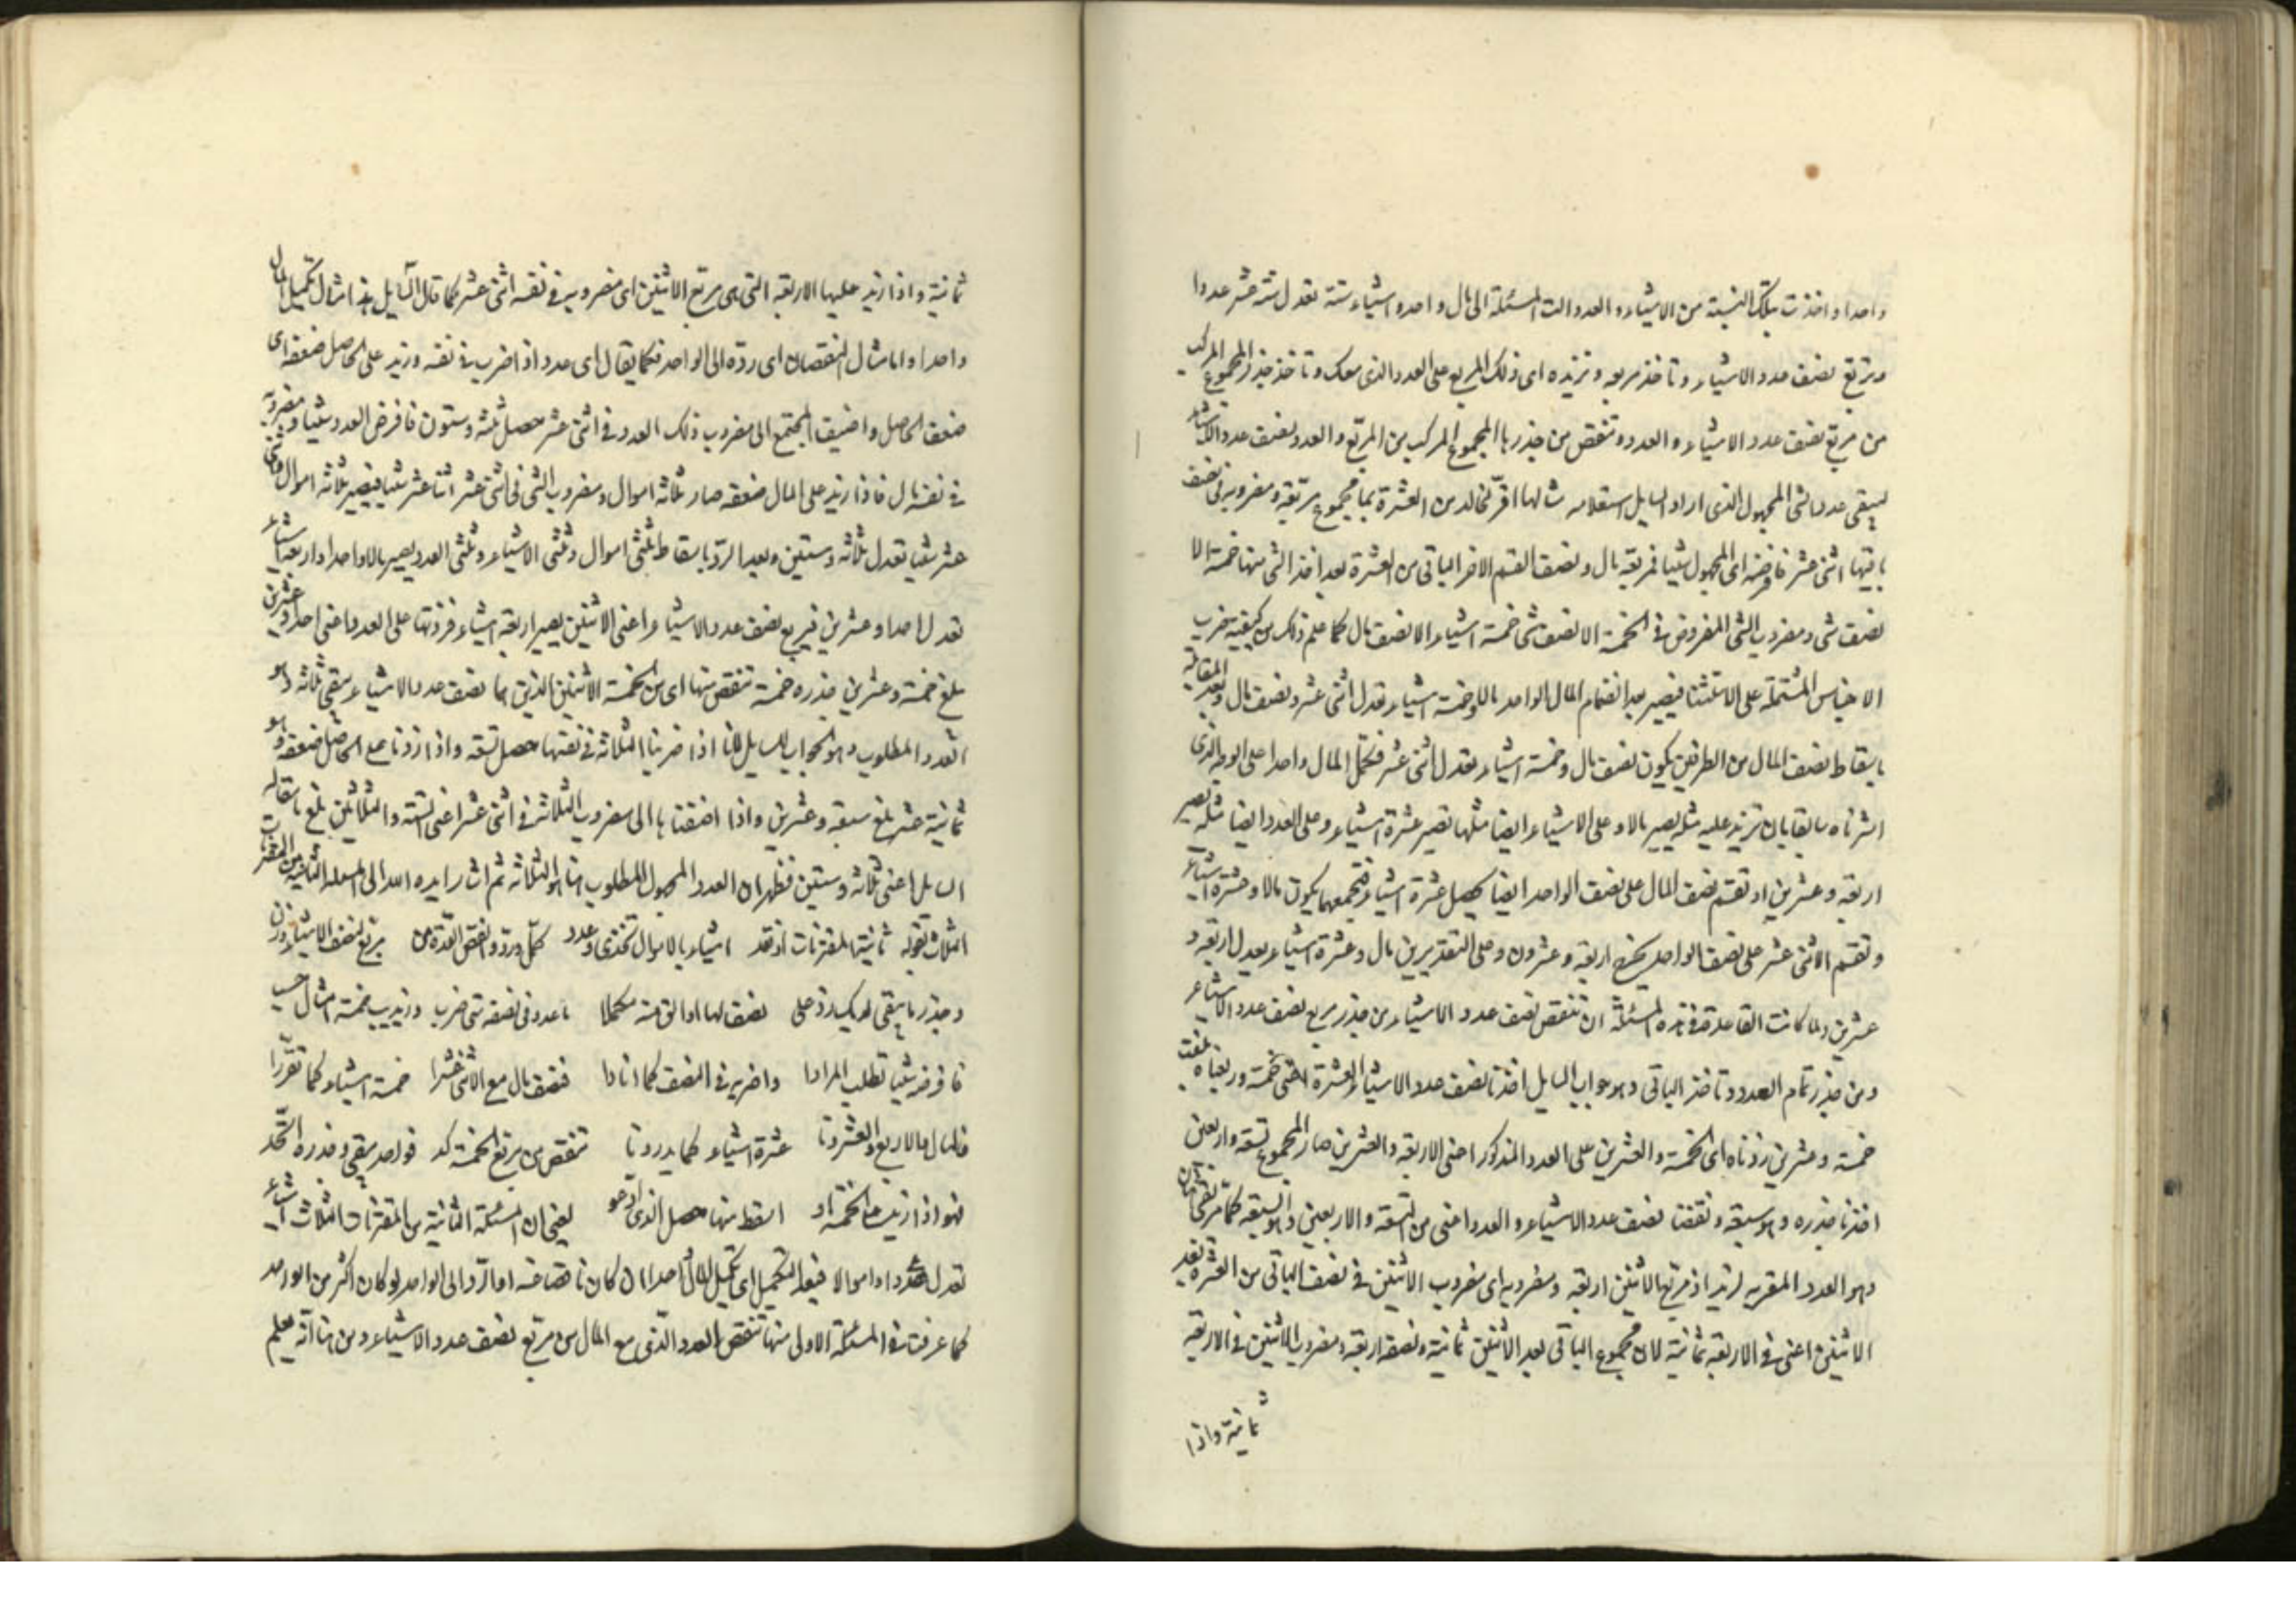 واحدا واخذت بتلك النسبة من الاشياء والعدد الت المسئلة الى مال واحد واشياء ستة تعدل ستة عشر عددا
وتربع نصف عدد الاشياء وتاخذ مربعه وتزيده اى ذلك المربع على العدد الذى معك وتاخذ جذر المجموع المركب
من مربع نصف عدد الاشياء والعدد وتنقص من جذر هذا المجموع المركب من المربع والعدد نصف عدد الاشياء
ليبقى عدد الشئ المجهول الذى اراد السايل استعلامه مثالها اقر لخالد من العشرة بما مجموع مربعه ومضروبه فى نصف
باقيها اثنى عشر فافرضه اى المجهول شيئا فمربعه مال ونصف القسم الاخر الباقى من العشرة بعد اخذ الشئ منها خمسة الا
نصف شئ ومضروب الشئ المفروض فى الخمسة الا نصف شئ خمسة اشياء الا نصف مال كما علم ذلك من كيفية ضرب
الاجناس المشتملة على الاستثناء فيصير بعد انضمام المال الواحد مالا وخمسة اشياء تعدل اثنى عشر ونصف مال وبعد المقابلة
باسقاط نصف المال من الطرفين يكون نصف مال وخمسة اشياء تعدل اثنى عشر فتكمل المال واحدا على الوجه الذى
اشرناه سابقا بان تزيد عليه مثله يصير مالا وعلى الاشياء ايضا مثلها تصير عشرة اشياء وعلى العدد ايضا مثله تصير
اربعة وعشرين او تقسم نصف المال على نصف الواحد ايضا يحصل عشرة اشياء فتجمعهما يكون مالا وعشرة اشياء
وتقسم الاثنى عشر على نصف الواحد يخرج اربعة وعشرون وعلى التقديرين مال وعشرة اشياء يعدل اربعة و
عشرين ولما كانت القاعدة فى هذه المسئلة ان تنقص نصف عدد الاشياء من جذر مربع نصف عدد الاشياء
ومن جذر تمام العدد وتاخذ الباقى وهو جواب السايل اخذنا نصف عدد الاشياء العشرة اعنى خمسة وربعناه بلغت
خمسة وعشرين زدناه اى الخمسة والعشرين على العدد المذكور اعنى الاربعة والعشرين صار المجموع تسعة واربعين
اخذنا جذره وهو سبعة ونقصنا نصف عدد الاشياء والعدد اعنى من التسعة والاربعين وهو السبعة كما مر بقى اثنان
وهو العدد المقر به لزيد اذ مربع الاثنين اربعة ومضروبه اى مضروب الاثنين فى نصف الباقى من العشرة بعد
الاثنين اعنى فى الاربعة ثمانية لان مجموع الباقى بعد الاثنين ثمانية ونصفه اربعة ومضروب الاثنين فى الاربعة
ثمانية واذا
ثمانية واذا زيد عليها الاربعة التى هى مربع الاثنين اى مضروبه فى نفسه اثنى عشر كما قال السايل هذا مثال تكميل المال
واحدا واما مثال النقصان اى رده الى الواحد فكما يقال اى عدد اذا ضرب فى نفسه وزيد على الحاصل ضعفه اى
ضعف الحاصل واضيف المجتمع الى مضروب ذلك العدد فى اثنى عشر حصل ثلثه وستون فافرض العدد شيئا ومضروبه
فى نفسه مال فاذا زيد على المال ضعفه صار ثلاثه اموال ومضروب الشئ فى اثنى عشر اثنا عشر شيئا فيصير ثلاثه اموال واثنى
عشر شيئا تعدل ثلاثه وستين وبعد الرد باسقاط ثلثى اموال وثلثى الاشياء وثلثى العدد يصير مالا واحدا واربعة اشياء
تعدل احدا وعشرين فيربع نصف عدد الاشياء اعنى الاثنين يصير اربعة اشياء فزدتها على العدد اعنى احدا وعشرين
بلغ خمسة وعشرين جذره خمسة تنقص منها اى من الخمسة الاثنين الذين هما نصف عدد الاشياء يبقى ثلاثه وهو
العدد المطلوب وهو الجواب للسايل لانا اذا ضربنا الثلاثه فى نفسها حصل تسعة واذا زدنا على الحاصل ضعفه وهو
ثمانية عشر بلغ سبعة وعشرين واذا اضفناها الى مضروب الثلاثه فى اثنى عشر اعنى الستة والثلاثين بلغ ما قاله
السايل اعنى ثلاثه وستين فظهر ان العدد المجهول المطلوب هنا هو الثلاثه ثم اشار ايده الله الى المسئلة الثانية من المقترنات
الثلاث بقوله ثانية المقترنات اذ تعد اشياء بالاموال تحتذى وعدد كمل ورد وانقص العدة من مربع نصف الاشياء وزن
وجذر ما يبقى لديك زد على نصف لها او القه منه مكملا ما عدد فى نصفه متى ضرب وزيد يب خمسة امثال حسب
فافرضه شيئا تطلب المرادا واضربه فى النصف كما افادا فنصف مال مع الاثنى عشرا خمسة اشياء كما تقررا
فالمال بالاربع والعشرونا عشرة اشياء كما يدرونا تنقص من مربع الخمسة كد فواحد يبقى وجذره اتحد
فهو اذا ازيد على الخمسة او اسقط منها حصل الذى ادعوا يعنى ان المسئلة الثانية من المقترنات الثلاث اشياء
تعدل عددا واموالا فبعد التكميل اى تكميل المال واحدا ان كان ناقصا عنه او الرد الى الواحد لو كان اكثر من الواحد
كما عرفت فى المسئلة الاولى منها تنقص العدد الذى مع المال من مربع نصف عدد الاشياء ومن هنا انه يعلم